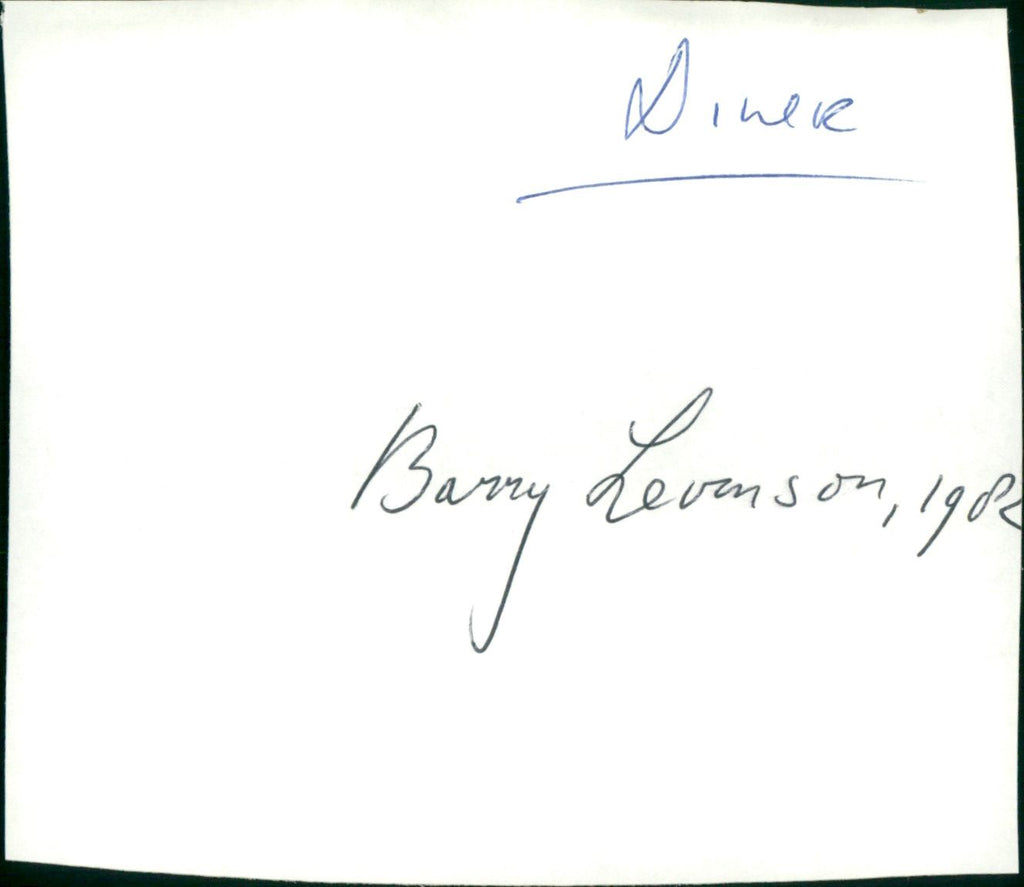 Diner
Barry Levinson, 1982